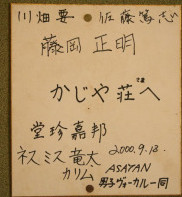 川畑要 佐藤篤志
藤岡正明
かじや荘へ
堂珍嘉邦
2000.9.13.
ネスミス竜太
カリム
ASAYAN
男子ヴォーカル一同